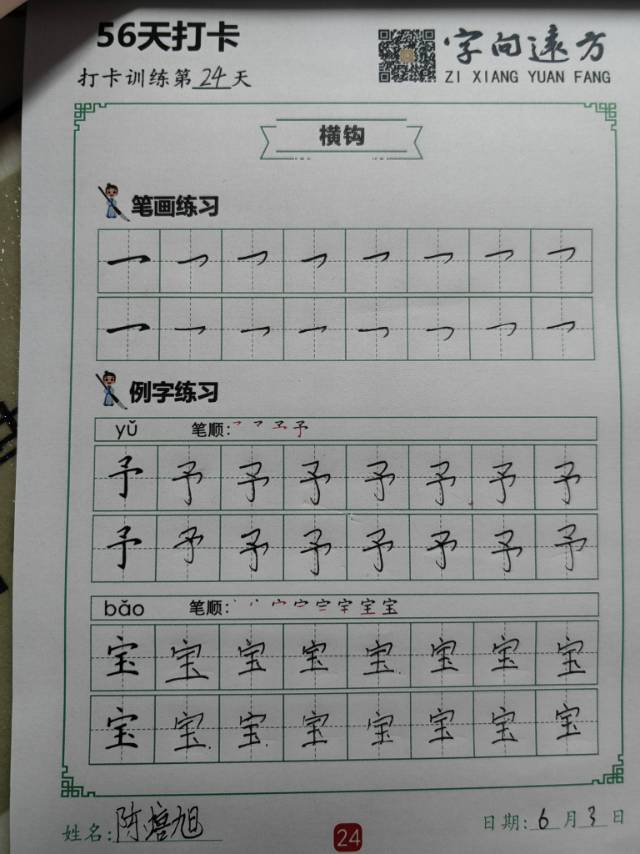 56天打卡
字向远方
打卡训练第24天
ZI XIANG YUAN FANG
横钩
笔画练习
例字练习
yǔ 笔顺:
予予予予予予予予
予予予予予予予予
bǎo 笔顺:
宝宝宝宝宝宝宝宝
宝宝宝宝宝宝宝宝
姓名:陈 旭
日期:6月3日
24